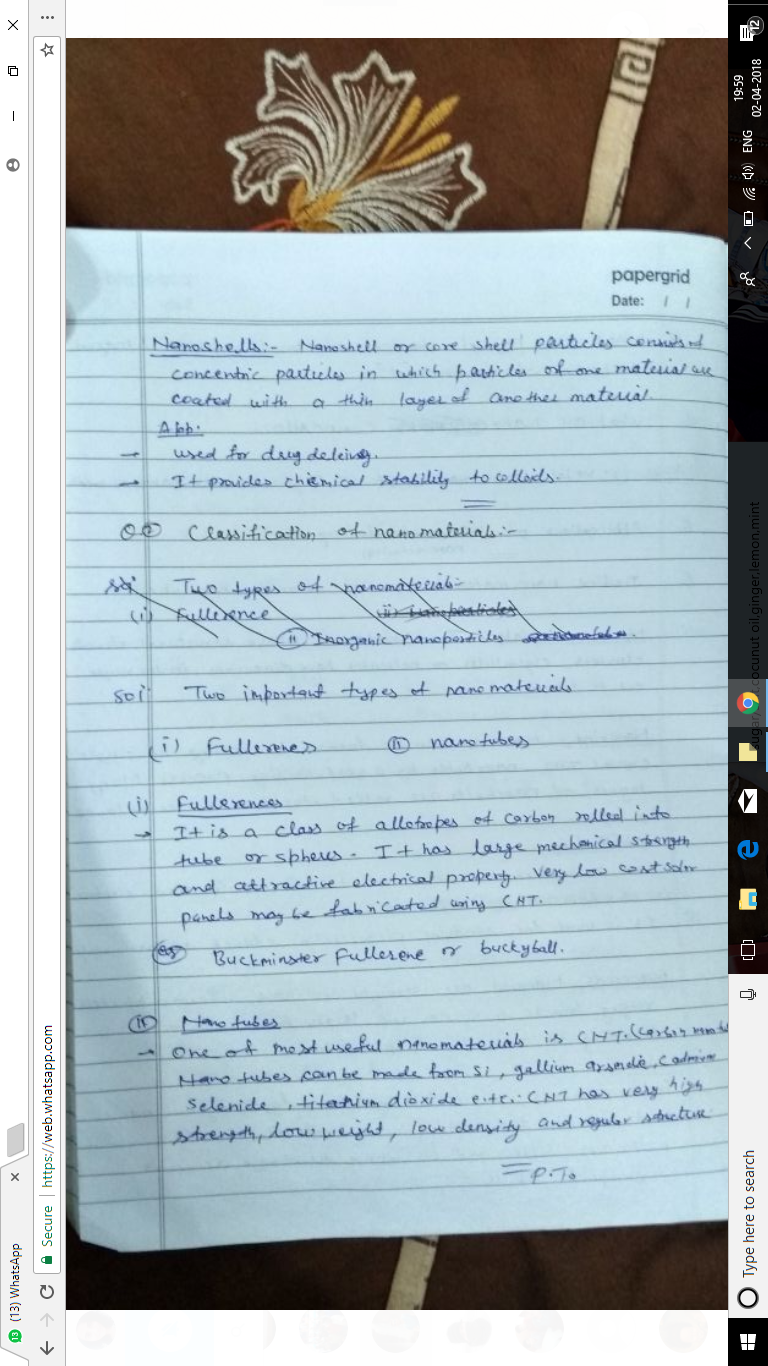 papergrid
Date: / /
Nanoshells:- Nanoshell or core shell particles consists of
concentric particles in which particles of one material are
coated with a thin layer of another material.
App:
→ used for drug
→ It provides chemical stability to colloids.
Classification of nanomaterials:-
Two types of nanomaterials:-
(i) Fullerence (ii) nanoparticles
(ii) Inorganic nanoparticles
sol Two important types of nanomaterials
(i) Fullerenes (ii) nanotubes
(i) Fullerences
→ It is a class of allotropes of carbon rolled into
tube or spheres. It has large mechanical strength
and attractive electrical property. Very low cost solar
panels may be fabricated using CNT.
eg Buckminster Fullerene or buckyball.
(ii) Nano tubes
→ One of most useful nanomaterials is CNT. (Carbon
Nano tubes can be made from Si, gallium arsenide, Cadmium
Selenide, titanium dioxide e.t.c. CNT has very high
strength, low weight, low density and regular structure
P.T.O
19:59
02-04-2018
12
ENG
Type here to search
cocunut oil,ginger,lemon,mint
(13) WhatsApp
13
Secure | https://web.whatsapp.com